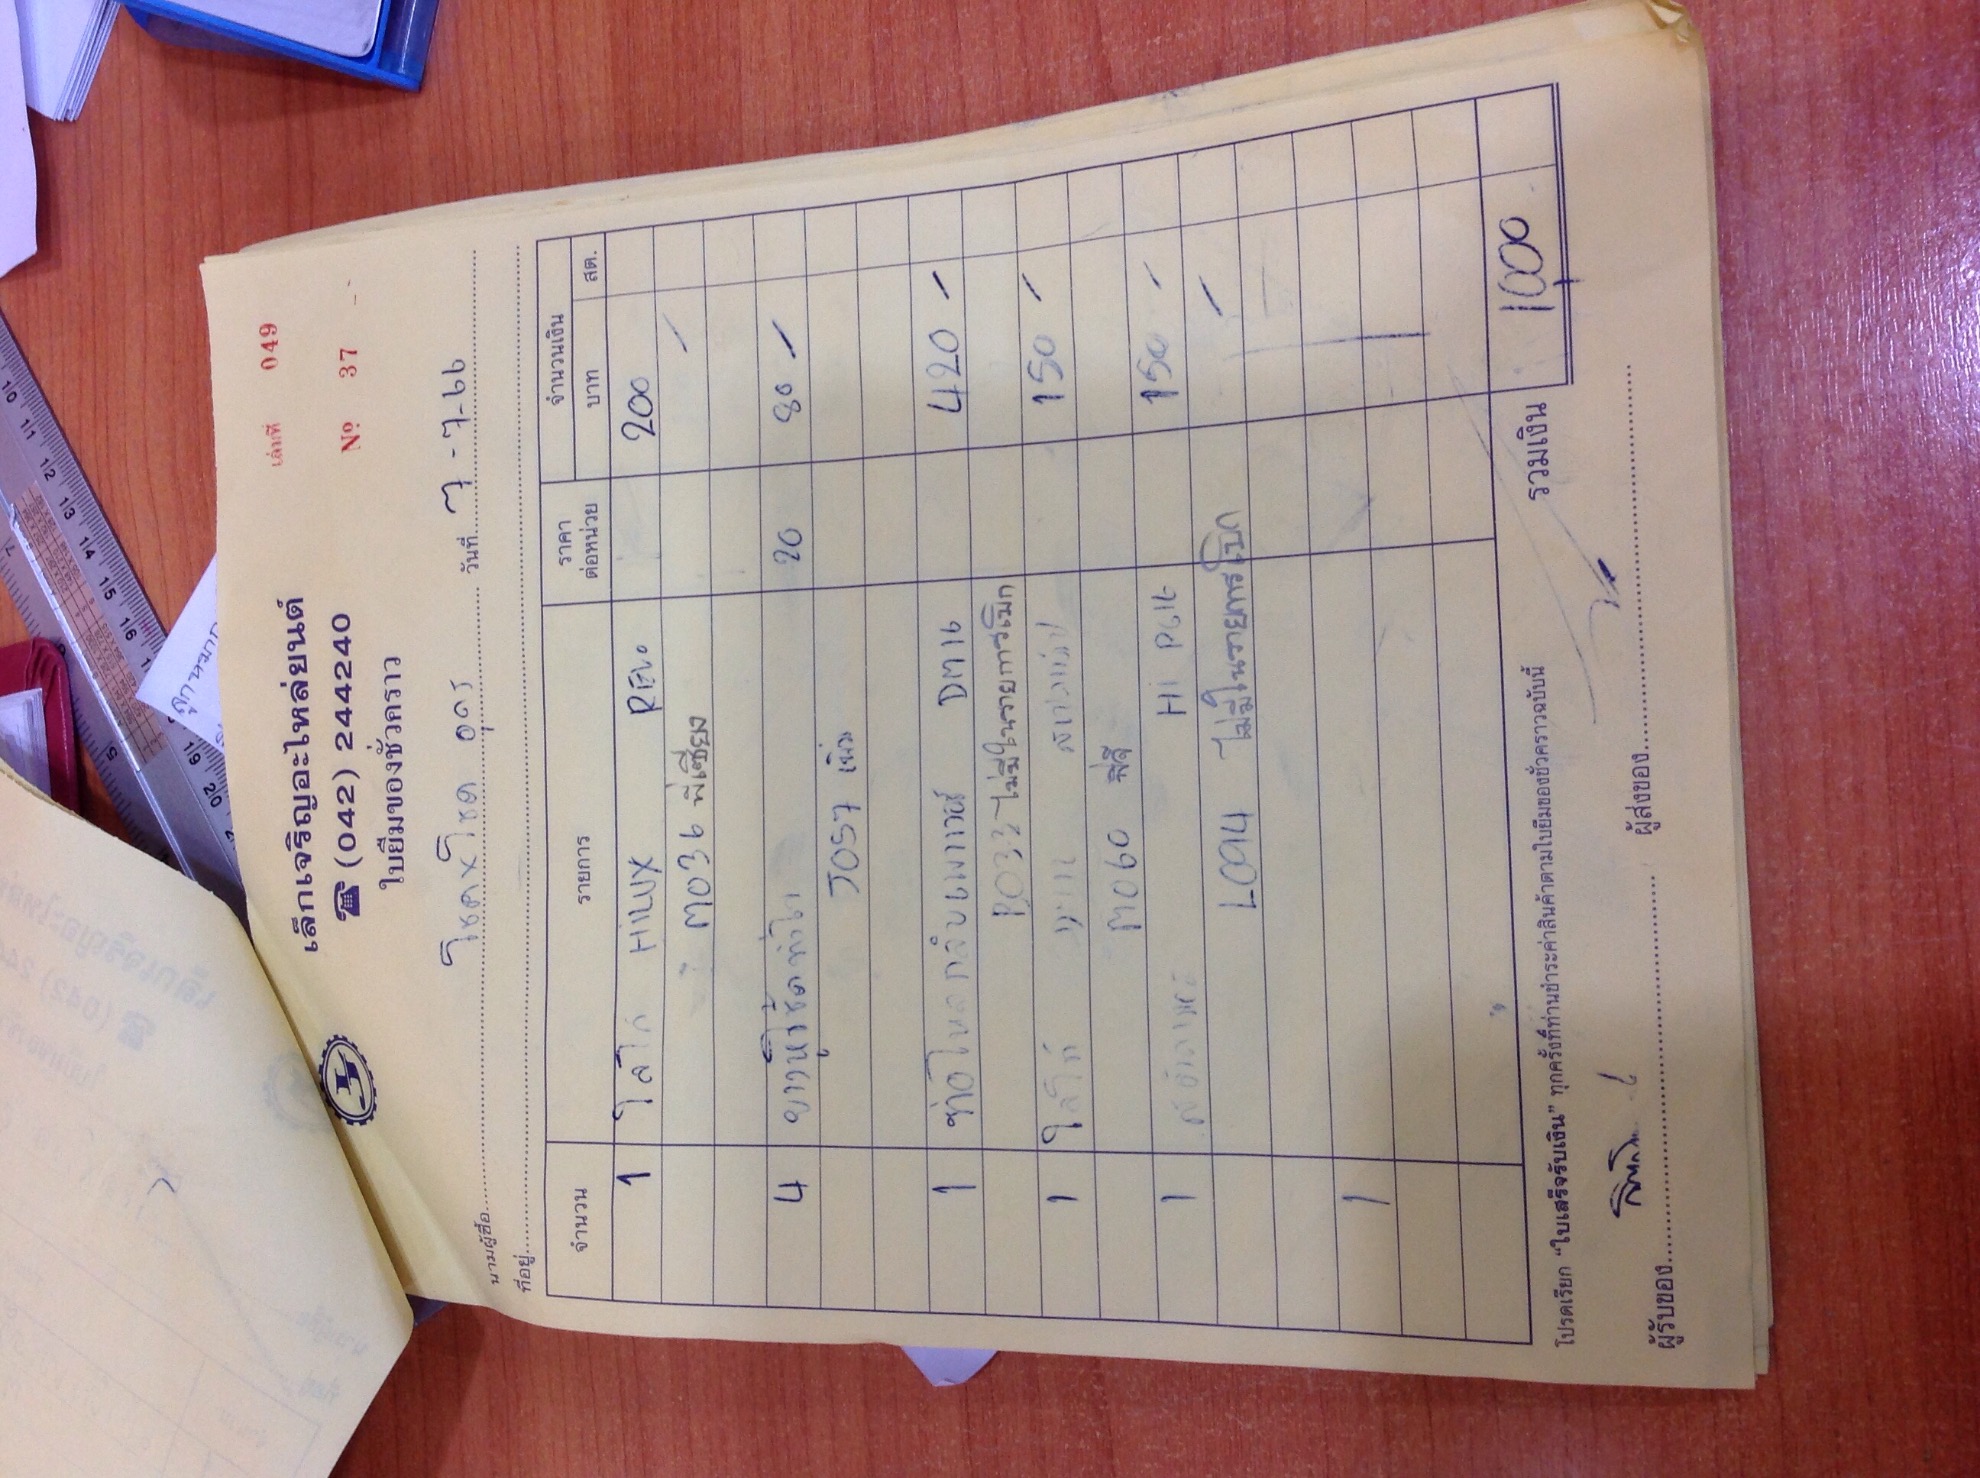 เล่มที่ 049
เล็กเจริญอะไหล่ยนต์
☎ (042) 244240
Nº 37
ใบยืมของชั่วคราว
นามผู้ซื้อ โชคxโชค อุดร วันที่ 7-7-66
ที่อยู่
จำนวน รายการ ราคาต่อหน่วย จำนวนเงิน
บาท สต.
1 ไส้ไก่ HILUX REVO 200
M036 พี่เซียง
4 ยางหูโช้ค 20 80
J057
1 ท่อไหลกลับ DM16 420
B032 ไม่มีในรายการเบิก
1 150
M060 พี่ลี
1 Hi PG16 150
L094 ไม่มีในรายการเบิก
1
รวมเงิน 1,000
โปรดเรียก “ใบเสร็จรับเงิน” ทุกครั้งที่ท่านชำระค่าสินค้าตามใบยืมของชั่วคราวฉบับนี้
ผู้รับของ ผู้ส่งของ
10 11 12 13 14 15 16
19 20